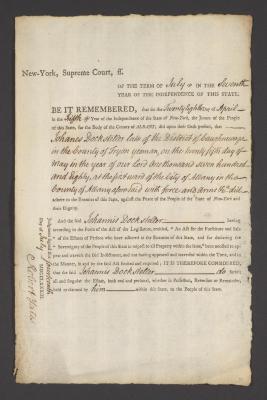 New-York, Supreme Court, ss.
OF THE TERM OF July IN THE Seventh
YEAR OF THE INDEPENDENCE OF THIS STATE.
BE IT REMEMBERED, that on the Twentyeighth Day of April
in the Fifth Year of the Independence of the State of New-York, the Jurors of the People
of this State, for the Body of the County of ALBANY, did upon their Oath present, that
Johannis Dockstetter late of the District of Caughnawaga
in the County of Tryon yeoman, on the twenty fifth day of
May in the year of our Lord one thousand seven hundred
and Eighty, at the first ward of the City of Albany in the
County of Albany aforesaid with force and arms &c did
adhere to the Enemies of this State, against the Peace of the People of the State of New-York and
their Dignity.
And the said Johannis Dockstetter having
according to the Form of the Act of the Legislature, entitled, "An Act for the Forfeiture and Sale
" of the Estates of Persons who have adhered to the Enemies of this State, and for declaring the
" Sovereignty of the People of this State in respect to all Property within the State," been notified to ap-
pear and traverse the said Indictment, and not having appeared and traversed within the Time, and in
the Manner, in and by the said Act limited and required; IT IS THEREFORE CONSIDERED,
that the said Johannis Dockstetter do forfeit
all and singular the Estate, both real and personal, whether in Possession, Reversion or Remainder,
held or claimed by him within this State, to the People of this State.